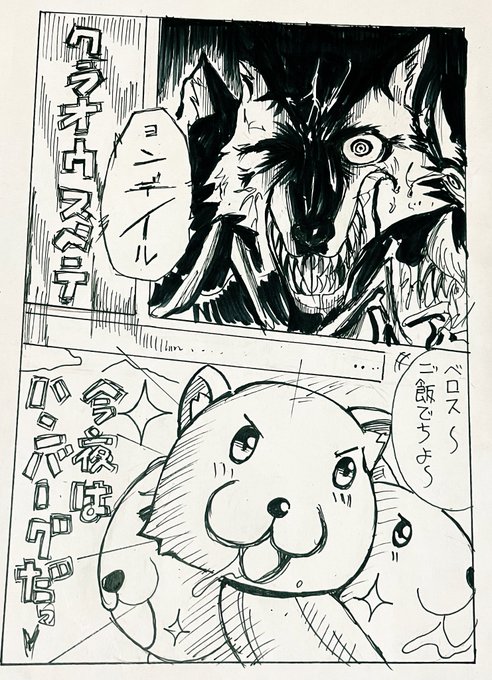 ヨンデイル
クラオウスベテ
ベロス〜
ご飯でちよ〜
今夜は
ハンバーグだっ